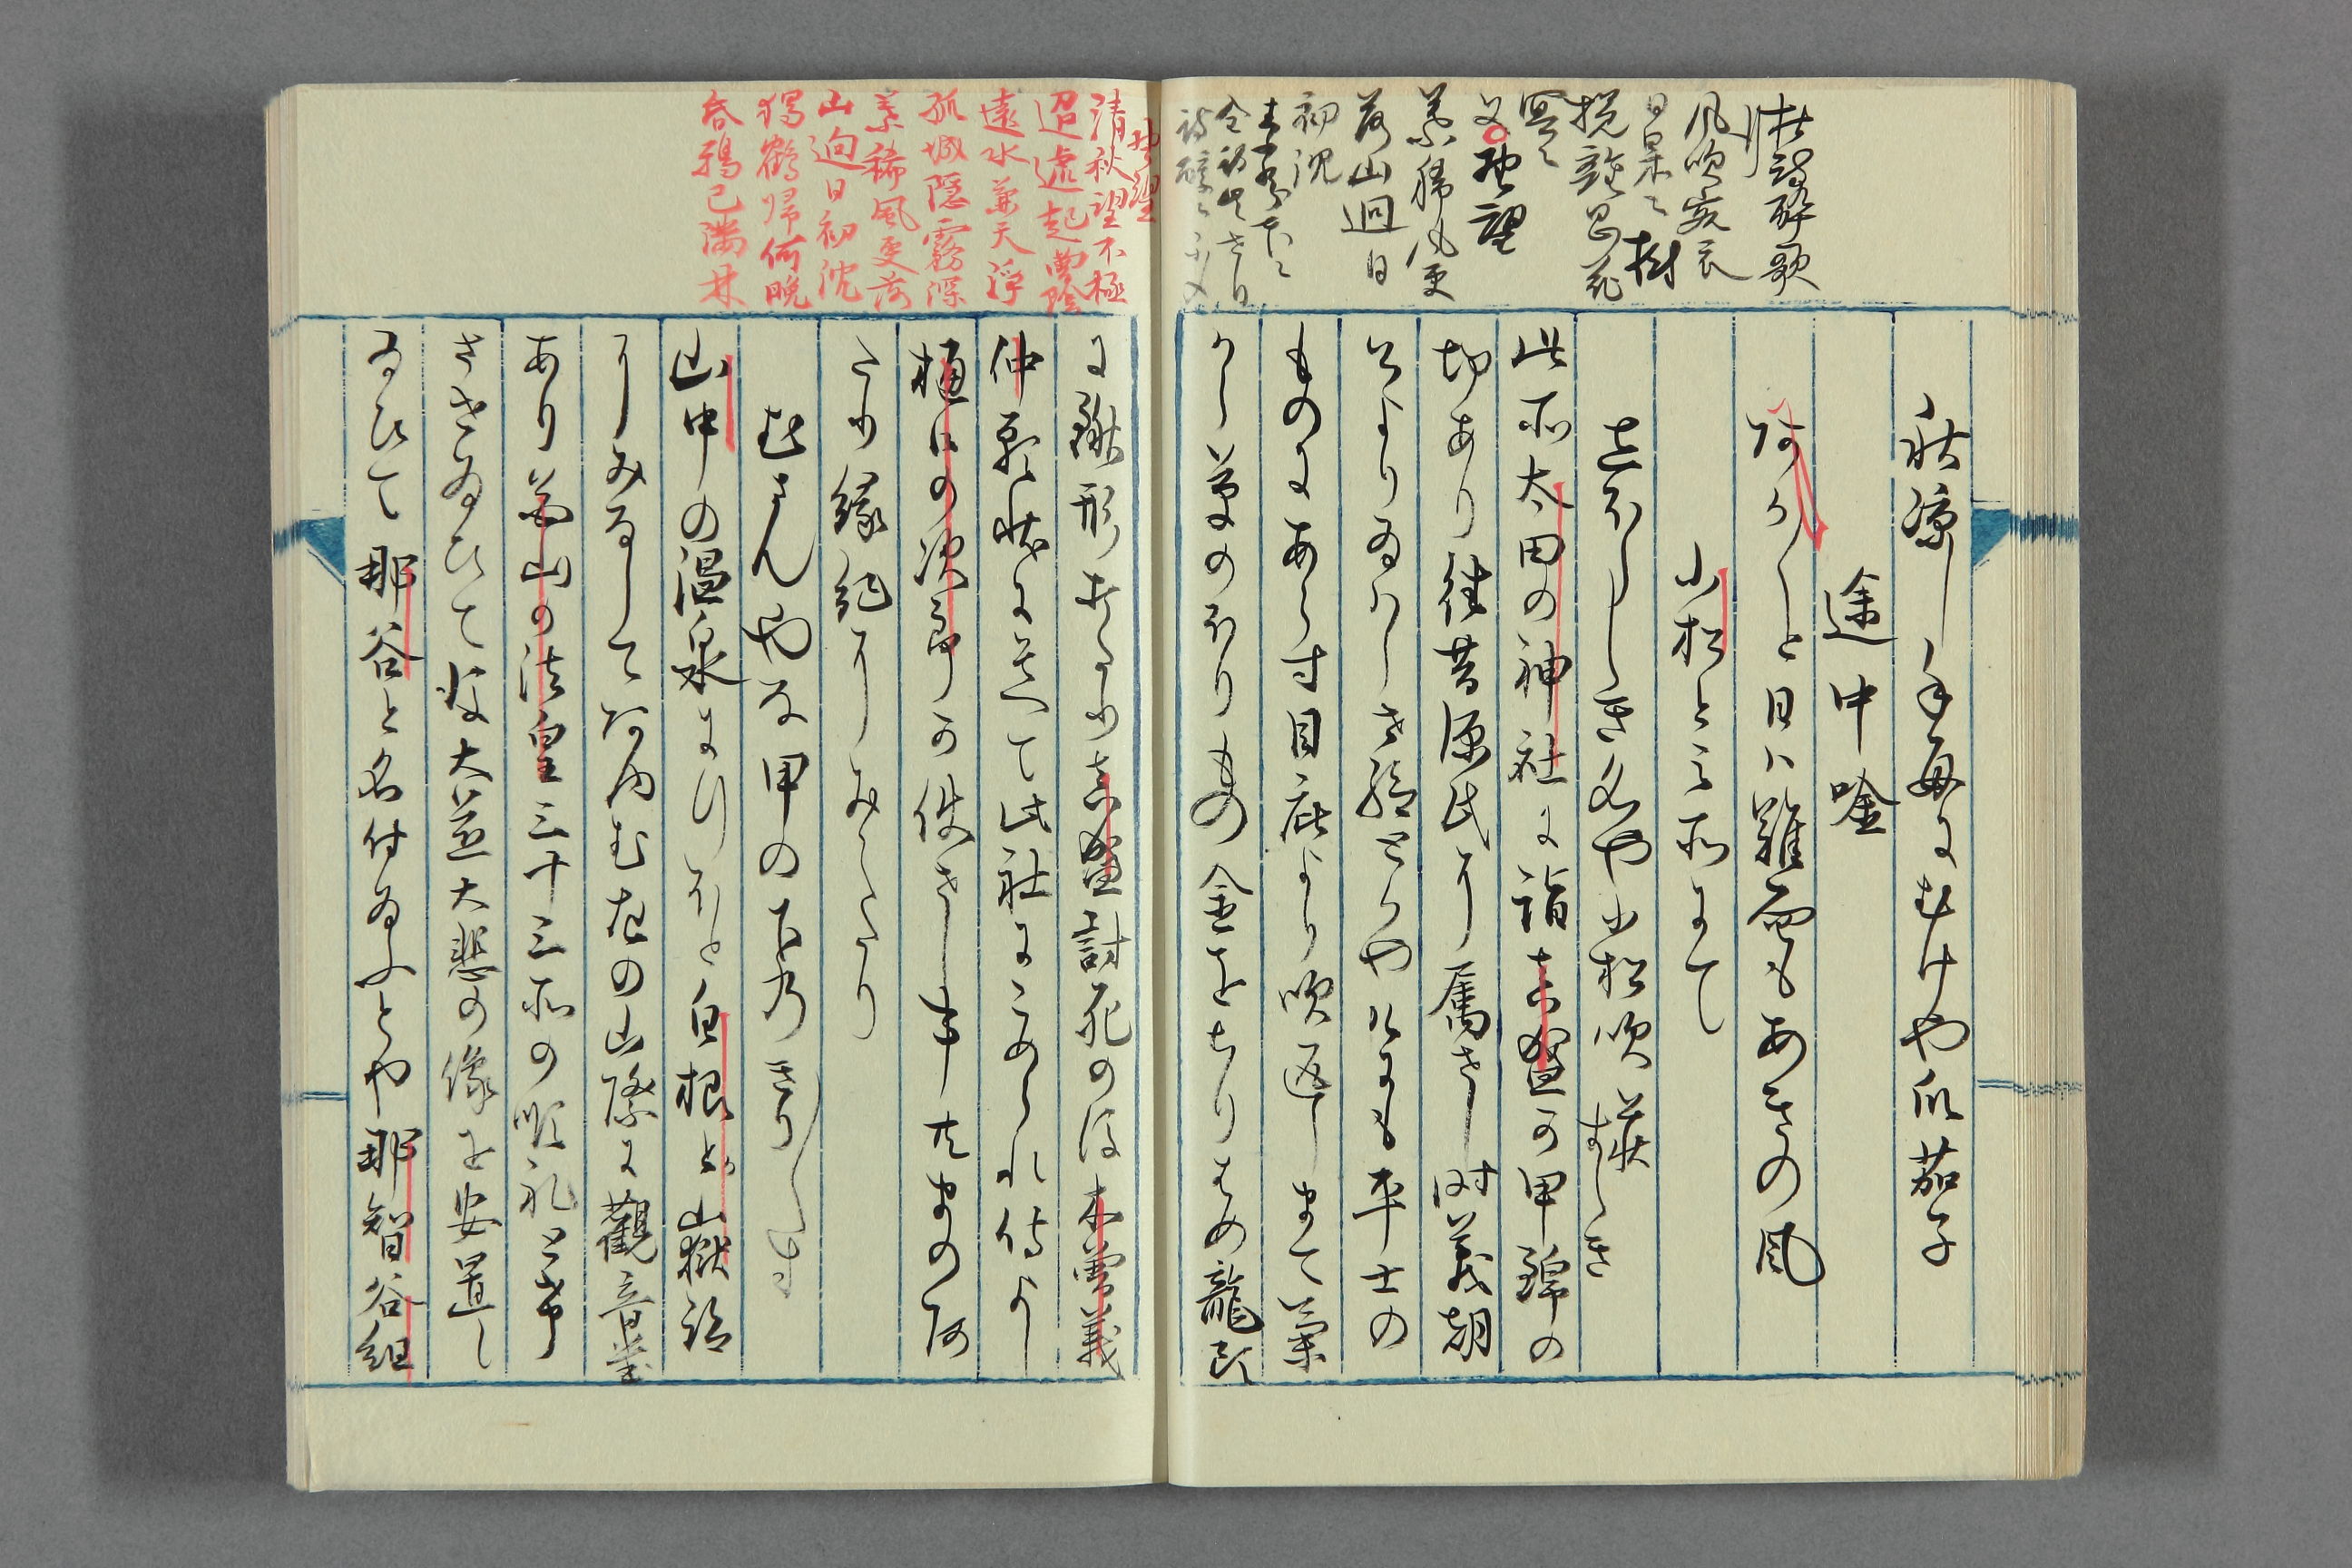 杜詩酔歌
行
風吹客衣
日杲々樹
攪離思花
冥々
又野望
葉稀風更
落山迥日
初沈
秋凉し手毎にむけや瓜茄子
途中唫
あか〱と日ハ難面もあきの風
小松と云所にて
しほらしき名や小松吹萩すゝき
此所太田の神社に詣真盛か甲錦の
切あり往昔源氏に属せし時義朝
公より給はらせ給とかやけにも平士の
ものにあらす目庇より吹返しまて菊
から草のほりもの金をちりはめ龍頭
野望
清秋望不極
迢遞起曽陰
遠水兼天浄
孤城隠霧深
葉稀風更落
山迥日初沈
独鶴帰何晩
昏鴉已満林
に鍬形打たり真盛討死の後木曽義
仲願状にそへて此社にこめられ侍よし
樋口の次郎か使せし事共まのあ
たり縁紀にみえたり
むさんやな甲の下のきり〱す
山中の温泉に行ほと白根か嶽跡
にみなしてあゆむ左の山際に觀音堂
あり花山の法皇三十三所の順礼とけ
させ給ひて後大慈大悲の像を安置し
給ひて那谷と名付給ふとや那智谷組